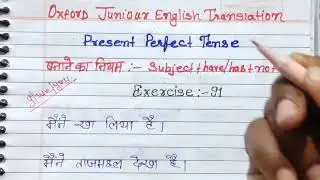 Oxford Juniour English Translation
Present Perfect Tense
बनाने का नियम :- Subject + have/has + not
I/we/you
Exercise:- 91
मैंने खा लिया है।
मैंने ताजमहल देखा है।